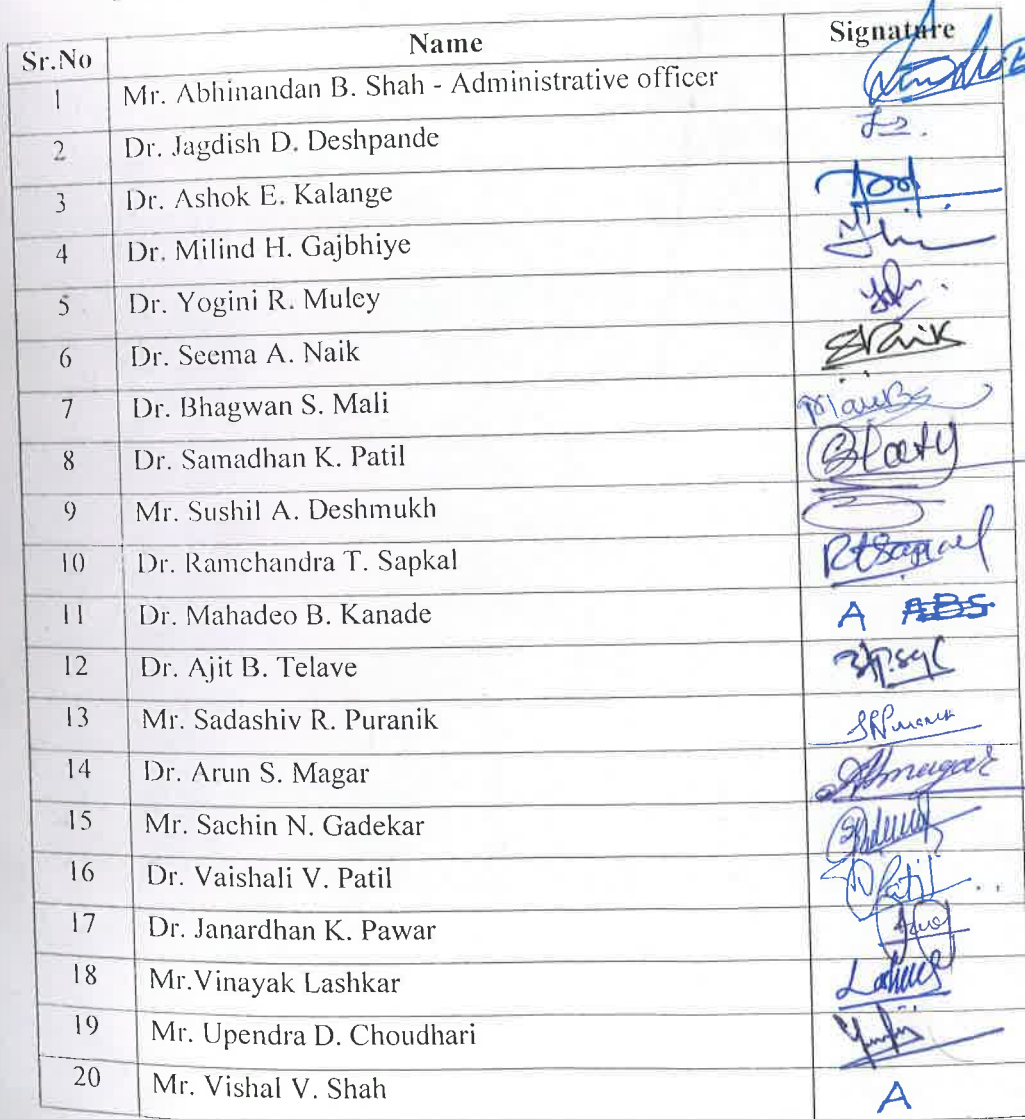 Sr.No Name Signature
1 Mr. Abhinandan B. Shah - Administrative officer
2 Dr. Jagdish D. Deshpande
3 Dr. Ashok E. Kalange
4 Dr. Milind H. Gajbhiye
5 Dr. Yogini R. Muley
6 Dr. Seema A. Naik
7 Dr. Bhagwan S. Mali
8 Dr. Samadhan K. Patil
9 Mr. Sushil A. Deshmukh
10 Dr. Ramchandra T. Sapkal
11 Dr. Mahadeo B. Kanade A ABS
12 Dr. Ajit B. Telave
13 Mr. Sadashiv R. Puranik
14 Dr. Arun S. Magar
15 Mr. Sachin N. Gadekar
16 Dr. Vaishali V. Patil
17 Dr. Janardhan K. Pawar
18 Mr.Vinayak Lashkar
19 Mr. Upendra D. Choudhari
20 Mr. Vishal V. Shah A